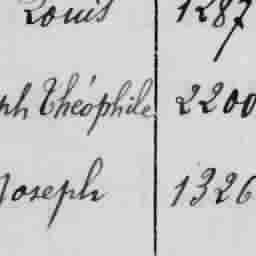 Louis 1287
ph Théophile 2200
Joseph 1326